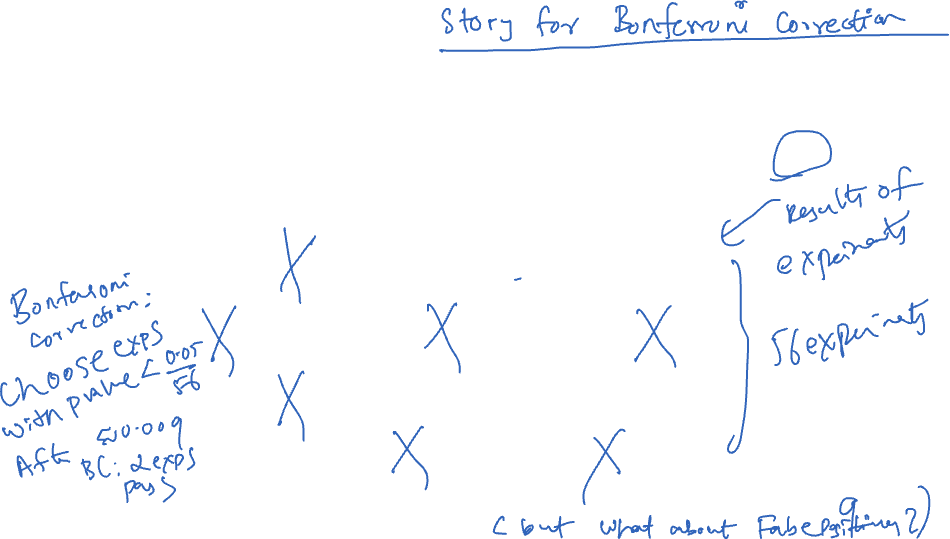 Story for Bonferroni Correction
Results of
experiments
56 experiments
Bonferroni
correction:
Choose exps
with pvalue < 0.05
56
≈0.009
After BC: 2 exps
pass
(but what about False positives?)